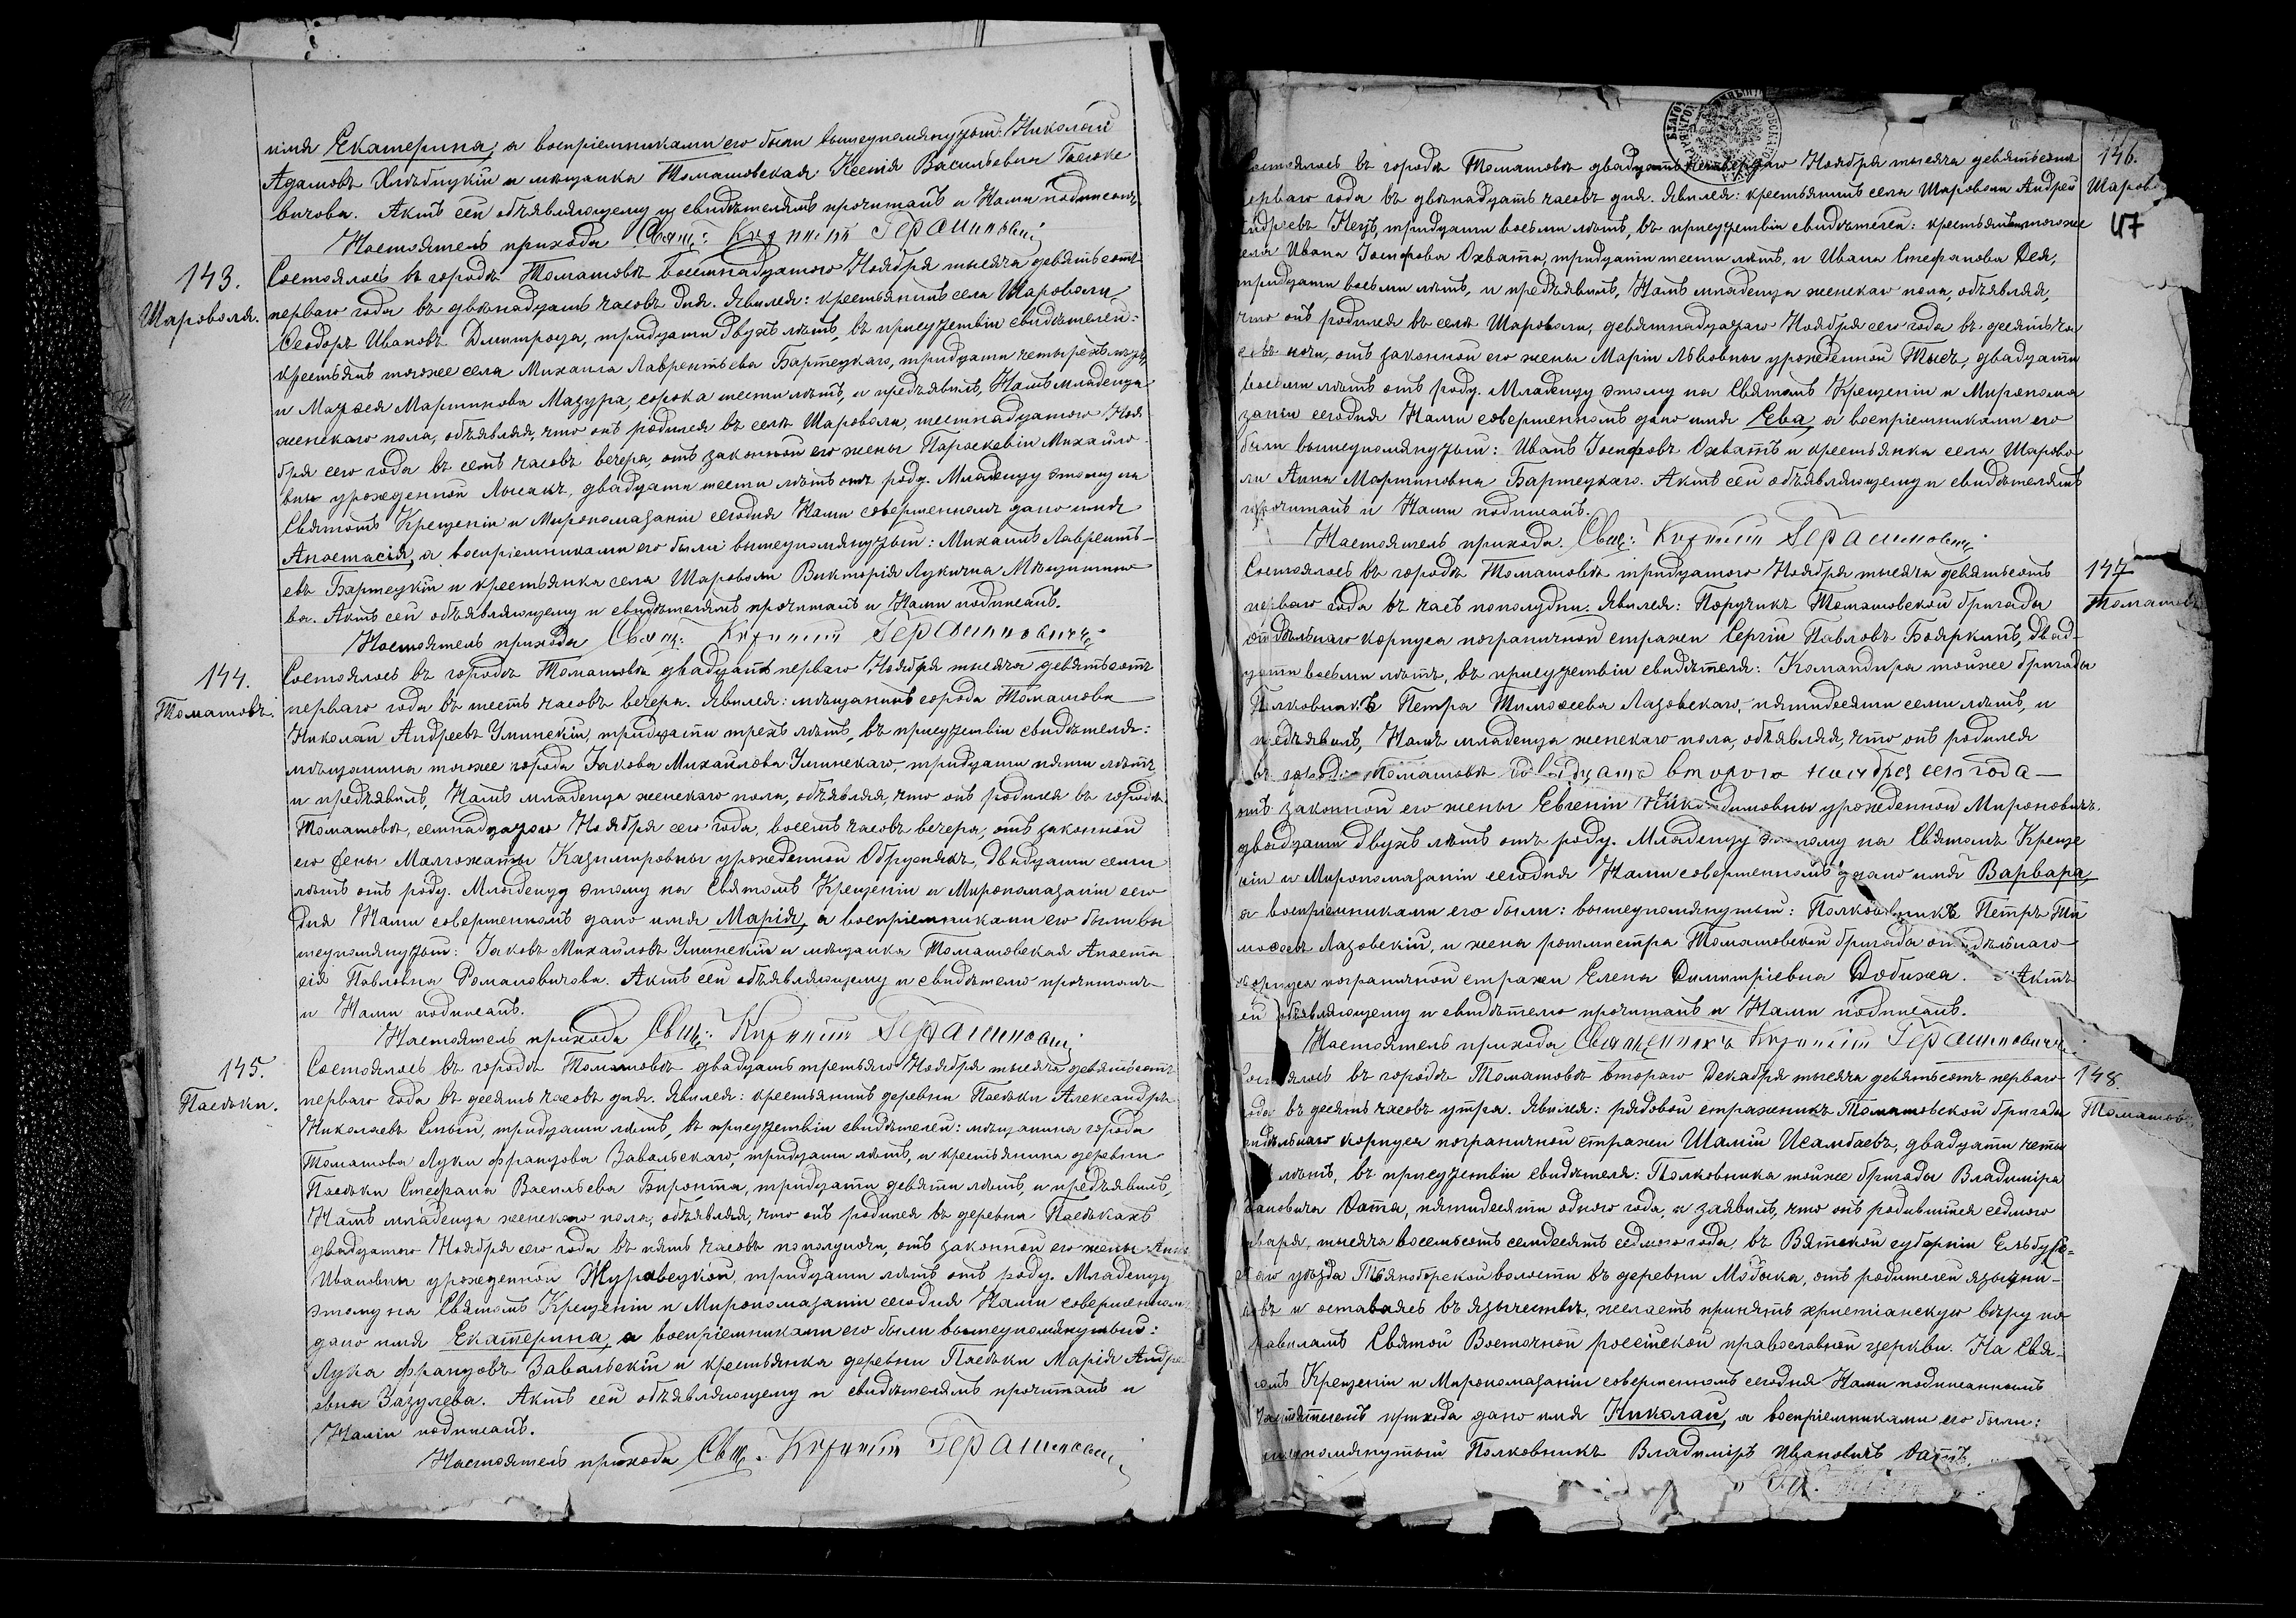 имя Екатерина, а воспріемниками его были вышеупомянутый: Николай
Адамовъ Хлѣбицкій и мѣщанка Томашовская Ксенія Васильевна
вичова. Актъ сей объявляющему и свидѣтелямъ прочитанъ и Нами подписанъ.
Настоятель прихода Свящ:
143.
Шароволя.
Состоялось въ городѣ Томашовѣ восемнадцатого Ноября тысяча девятьсотъ
перваго года въ двѣнадцать часовъ дня. Явился: крестьянинъ села Шароволи,
Ѳеодоръ Ивановъ Дмитроца, тридцати двухъ лѣтъ, въ присутствіи свидѣтелей:
крестьянъ тогоже села Михаила Лаврентьева Бартецкаго, тридцати четырехъ лѣтъ,
и Матѳея Мартинова Мазура, сорока шести лѣтъ, и предъявилъ Намъ младенца
женскаго пола, объявляя, что онъ родился въ селѣ Шароволи, шестнадцатого Ноя
бря сего года въ семь часовъ вечера, отъ законной его жены Параскевіи Михайло
вны урожденной Лысакъ, двадцати шести лѣтъ отъ роду. Младенцу этому на
Святомъ Крещеніи и Миропомазаніи сегодня Нами совершенномъ дано имя
Анастасія, а воспріемниками его были вышеупомянутый: Михаилъ Лавренть-
евъ Бартецкій и крестьянка села Шароволи Викторія Лукична
ва. Актъ сей объявляющему и свидѣтелямъ прочитанъ и Нами подписанъ.
Настоятель прихода Свящ:
144.
Томашовъ.
Состоялось въ городѣ Томашовѣ двадцать перваго Ноября тысяча девятьсотъ
перваго года въ шесть часовъ вечера. Явился: мѣщанинъ города Томашова
Николай Андреевъ Улинскій, тридцати трехъ лѣтъ, въ присутствіи свидѣтеля:
мѣщанина тогоже города Іакова Михайлова Улинскаго, тридцати пяти лѣтъ
и предъявилъ, Намъ младенца женскаго пола, объявляя, что онъ родился въ городѣ
Томашовѣ, семнадцатого Ноября сего года, восемь часовъ вечера, отъ законной
его жены Малгожаты Казимировны урожденной Обруснякъ, двадцати семи
лѣтъ отъ роду. Младенцу этому на Святомъ Крещеніи и Миропомазаніи сего
дня Нами совершенномъ дано имя Марія, а воспріемниками его были вы
шеупомянутый: Іаковъ Михайловъ Улинскій и мѣщанка Томашовская Анаста
сія Павловна Романовичова. Актъ сей объявляющему и свидѣтелю прочитанъ
и Нами подписанъ.
Настоятель прихода Свящ:
145.
Пасѣки.
Состоялось въ городѣ Томашовѣ двадцать третьяго Ноября тысяча девятьсотъ
перваго года въ десять часовъ дня. Явился: крестьянинъ деревни Пасѣки Александръ
Николаевъ тридцати лѣтъ, въ присутствіи свидѣтелей: мѣщанина города
Томашова Луки Францова Завальскаго, тридцати лѣтъ, и крестьянина деревни
Пасѣки Стефана Васильева Биронта, тридцати девяти лѣтъ, и предъявилъ,
Намъ младенца женскаго пола, объявляя, что онъ родился въ деревни Пасѣкахъ
двадцатого Ноября сего года въ пять часовъ пополуночи, отъ законной его жены Анны
Ивановны урожденной Журавецкой, тридцати лѣтъ отъ роду. Младенцу
этому на Святомъ Крещеніи и Миропомазаніи сегодня Нами совершенномъ
дано имя Екатерина, а воспріемниками его были вышеупомянутый:
Лука Францовъ Завальскій и крестьянка деревни Пасѣки Марія Андре
евна Зазулева. Актъ сей объявляющему и свидѣтелямъ прочитанъ и
Нами подписанъ.
Настоятель прихода Свящ:
146.
Шарово
47
Состоялось въ городѣ Томашовѣ двадцать четвертаго Ноября тысяча девятьсотъ
перваго года въ двѣнадцать часовъ дня. Явился: крестьянинъ села Шароволи Андрей
Андреевъ тридцати восьми лѣтъ, въ присутствіи свидѣтелей: крестьянъ тогоже
села Ивана Іосифова Охвата, тридцати шести лѣтъ, и Ивана Стефанова
тридцати восьми лѣтъ, и предъявилъ, Намъ младенца женскаго пола, объявляя,
что онъ родился въ селѣ Шароволи, девятнадцатаго Ноября сего года въ десять ча
совъ ночи, отъ законной его жены Маріи Львовны урожденной Тысъ, двадцати
восьми лѣтъ отъ роду. Младенцу этому на Святомъ Крещеніи и Миропома
заніи сегодня Нами совершенномъ дано имя Ева, а воспріемниками его
были вышеупомянутый: Иванъ Іосифовъ Охватъ и крестьянка села Шарово
ли Анна Мартиновна Бартецкаго. Актъ сей объявляющему и свидѣтелямъ
прочитанъ и Нами подписанъ.
Настоятель прихода. Свящ:
147
Томашовъ
Состоялось въ городѣ Томашовѣ тридцатого Ноября тысяча девятьсотъ
перваго года въ часъ пополудни. Явился: Поручикъ Томашовской бригады
отдѣльнаго корпуса пограничной стражи Сергій Павловъ Бояркинъ, двад-
цати восьми лѣтъ, въ присутствіи свидѣтеля: Командира тойже бригады
Полковникъ Петра Тимоѳеева Лазовскаго, пятидесяти семи лѣтъ, и
предъявилъ, Намъ младенца женскаго пола, объявляя, что онъ родился
въ городѣ Томашовѣ двадцать второго ноября сего года —
отъ законной его жены Евгеніи Никодимовны урожденной Мироновичъ.
двадцати двухъ лѣтъ отъ роду. Младенцу этому на Святомъ Креще
ніи и Миропомазаніи сегодня Нами совершенномъ дано имя Варвара,
а воспріемниками его были: вышеупомянутый: Полковникъ Петръ Ти
моѳеевъ Лазовскій, и жена ротмистра Томашовской бригады отдѣльнаго
корпуса пограничной стражи Елена Димитріевна Добижа. Актъ
сей объявляющему и свидѣтелю прочитанъ и Нами подписанъ.
Настоятель прихода Священникъ
148.
Томашовъ
Состоялось въ городѣ Томашовѣ втораго Декабря тысяча девятьсотъ перваго
года въ десять часовъ утра. Явился: рядовой стражникъ Томашовской бригады
отдѣльнаго корпуса пограничной стражи Шамій Исамбаевъ, двадцати четы
лѣтъ, въ присутствіи свидѣтеля: Полковника тойже бригады Владиміра
Ивановича пятидесяти одного года, и заявилъ, что онъ родившійся седмого
января, тысяча восемьсотъ семдесятъ седмого года, въ Вятской губерніи Елабуж-
скаго уѣзда волости въ деревни отъ родителей язычни-
ковъ и оставаясь въ язычествѣ, желаетъ принять христіанскую вѣру по
правиламъ Святой Восточной россійской православной церкви. На Свя-
томъ Крещеніи и Миропомазаніи совершенномъ сегодня Нами подписаннымъ
Настоятелемъ прихода дано имя Николай, а воспріемниками его были:
вышеупомянутый Полковникъ Владиміръ Ивановичъ